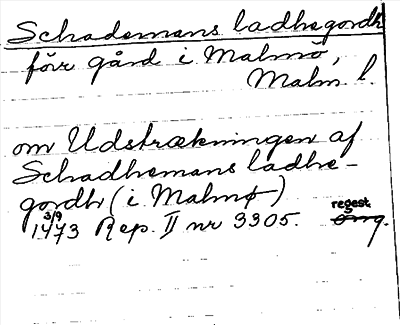 Schademans ladhegordh
förr gård i Malmö,
Malm. l.
om Udstrækningen af
Schadhemans ladhe-
gordh (i Malmø)
3/9 1473 Rep. II nr 3305. regest